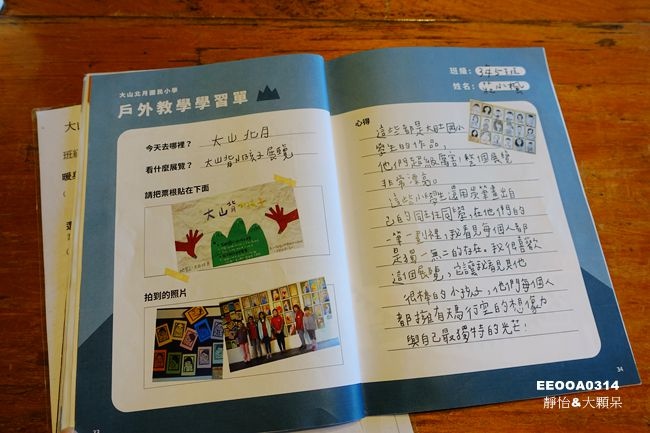 大山北月國民小學
戶外教學學習單
今天去哪裡？ 大山北月
看什麼展覽？ 大山背小孩子展覽
請把票根貼在下面
大山背小孩子
拍到的照片
班級：
姓名：
心得
這些都是大肚國小
學生的作品，
他們超級厲害！整個展覽
非常漂亮。
這些小學生運用炭筆畫出自
己的同班同學，在他們的
一筆一劃裡，我看見每個人都
是獨一無二的存在。我很喜歡
這個展覽，它讓我看見其他
很棒的小孩子，他們每個人
都擁有天馬行空的想像力
與自己最獨特的光芒！
33
34
EEOOA0314
靜怡&大顆呆